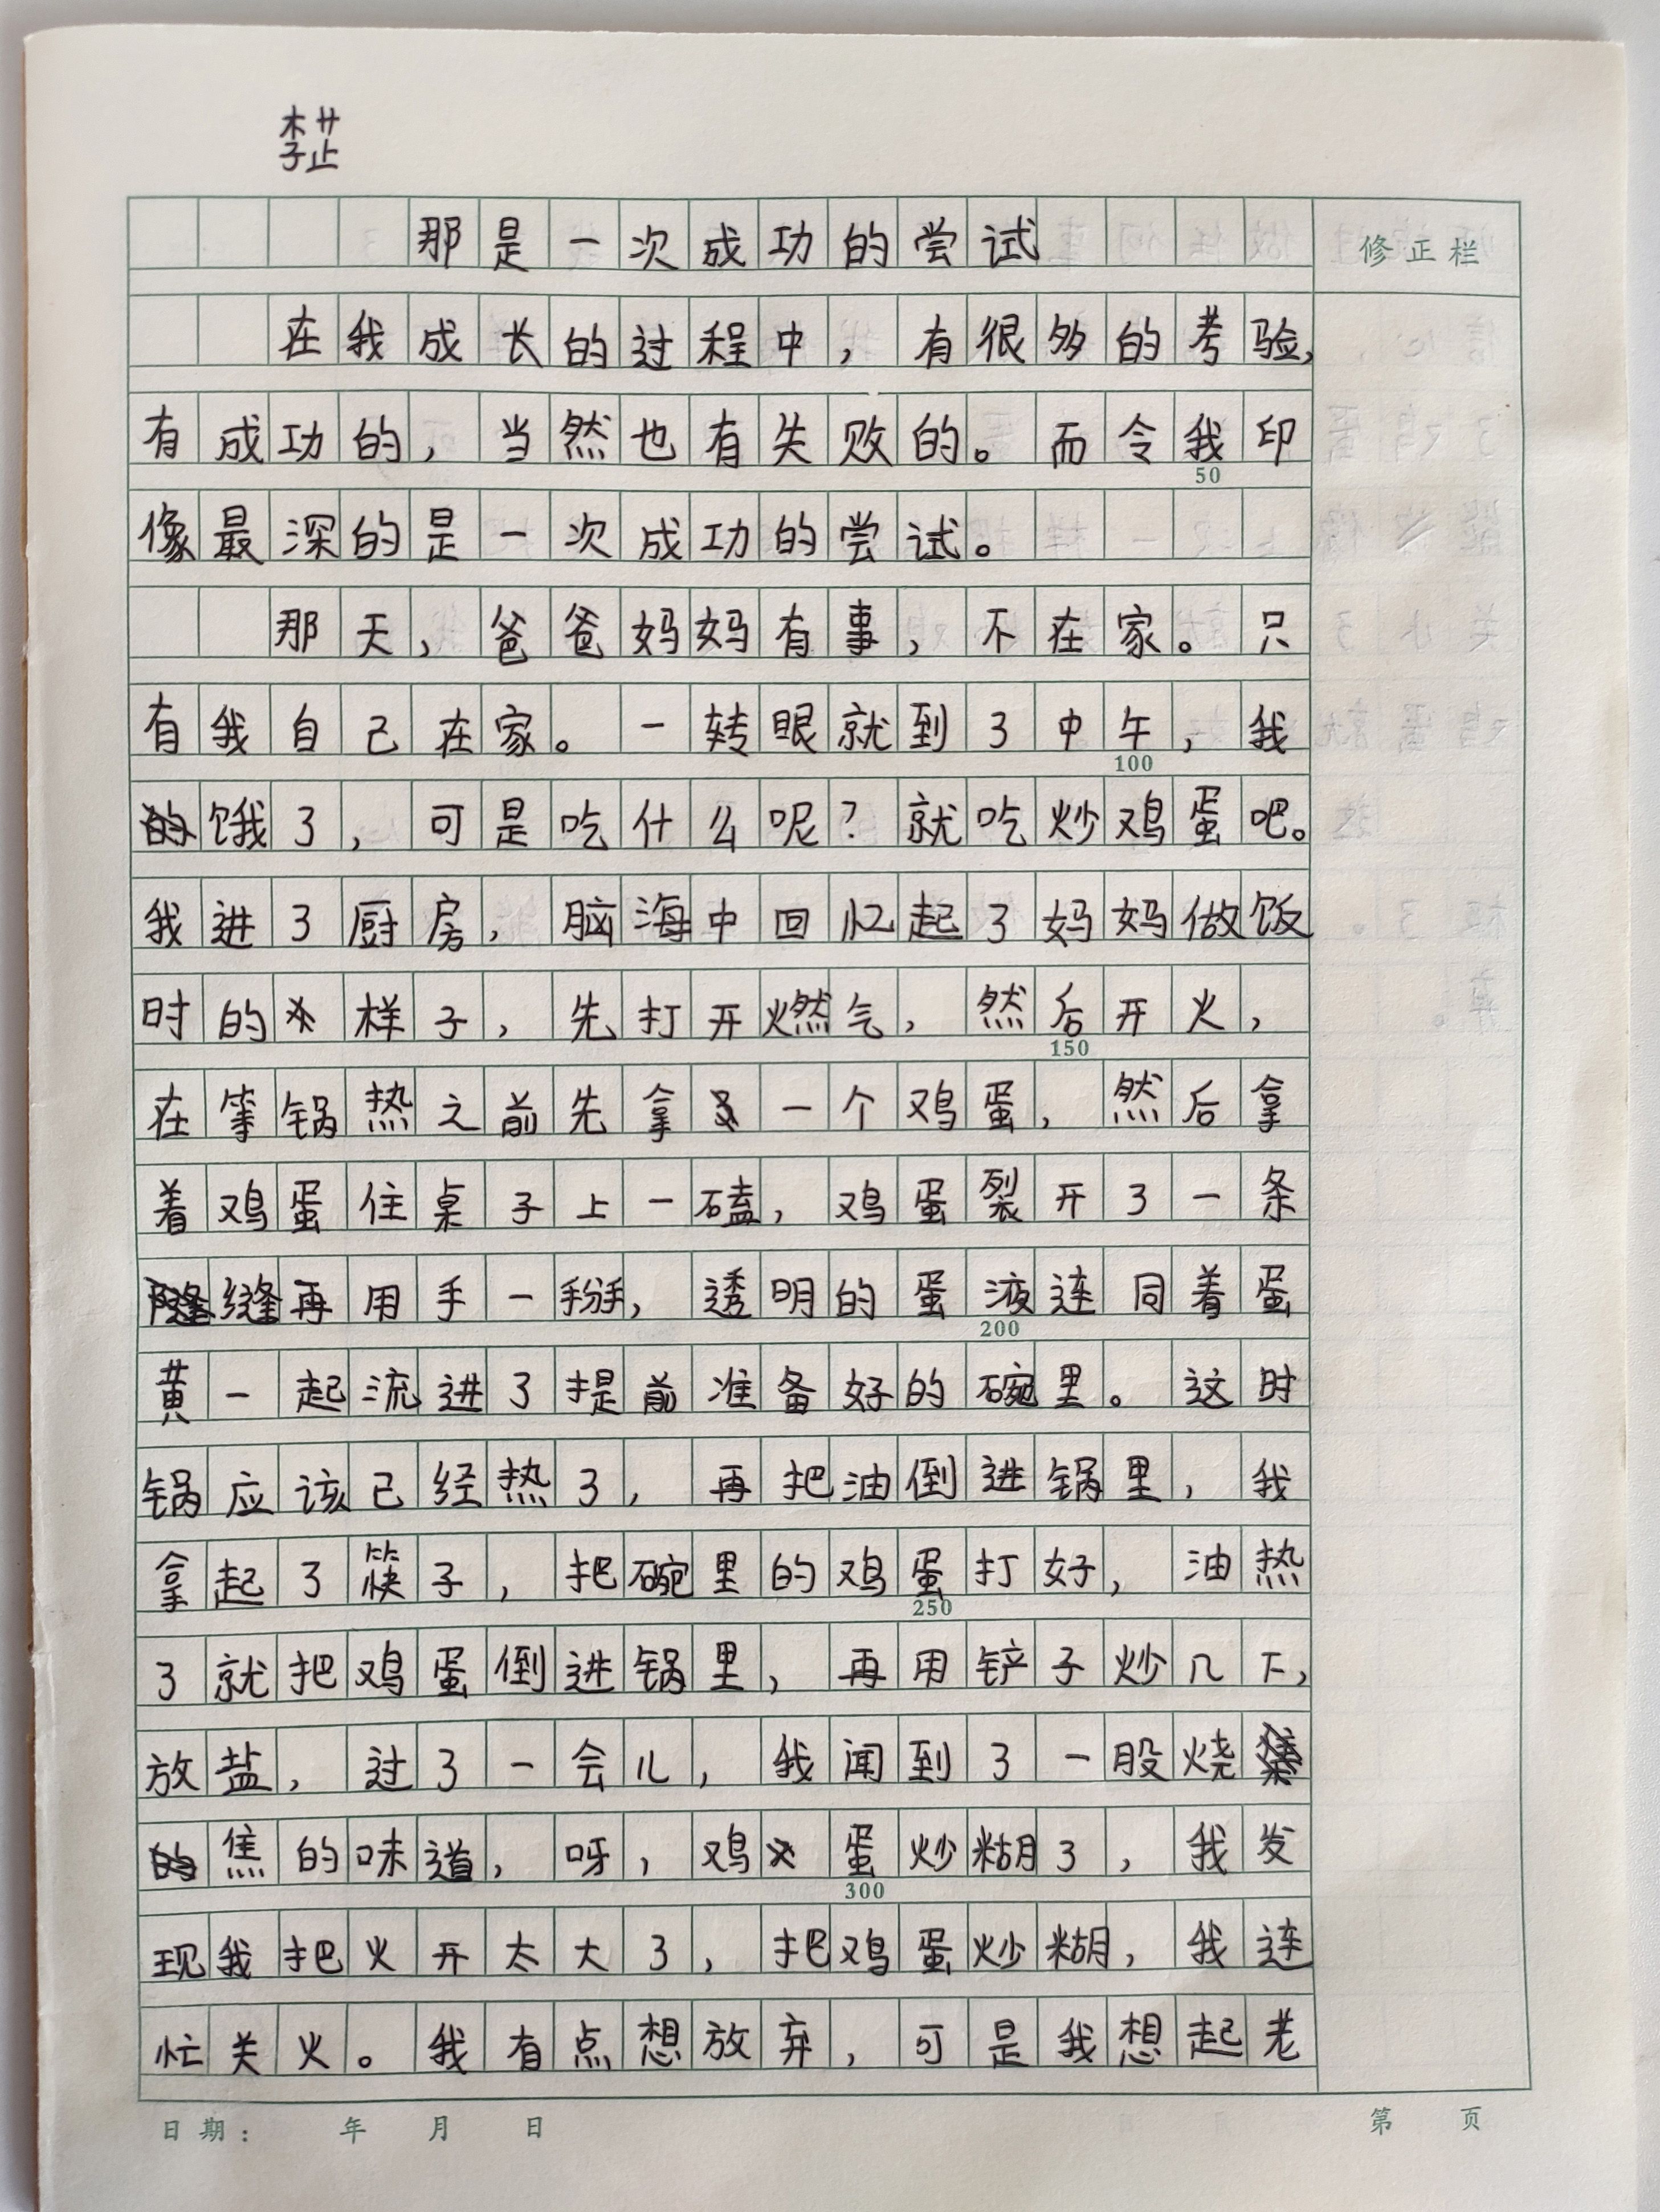 李芷
那是一次成功的尝试
修正栏
在我成长的过程中，有很多的考验，
有成功的，当然也有失败的。而令我印
50
像最深的是一次成功的尝试。
那天，爸爸妈妈有事，不在家。只
有我自己在家。一转眼就到了中午，我
100
饿了，可是吃什么呢？就吃炒鸡蛋吧。
我进了厨房，脑海中回忆起了妈妈做饭
时的样子，先打开燃气，然后开火，
150
在等锅热之前先拿一个鸡蛋，然后拿
着鸡蛋住桌子上一磕，鸡蛋裂开了一条
缝再用手一掰，透明的蛋液连同着蛋
200
黄一起流进了提前准备好的碗里。这时
锅应该已经热了，再把油倒进锅里，我
拿起了筷子，把碗里的鸡蛋打好，油热
250
了就把鸡蛋倒进锅里，再用铲子炒几下，
放盐，过了一会儿，我闻到了一股烧
焦的味道，呀，鸡蛋炒糊了，我发
300
现我把火开太大了，把鸡蛋炒糊，我连
忙关火。我有点想放弃，可是我想起老
日期： 年 月 日 第 页